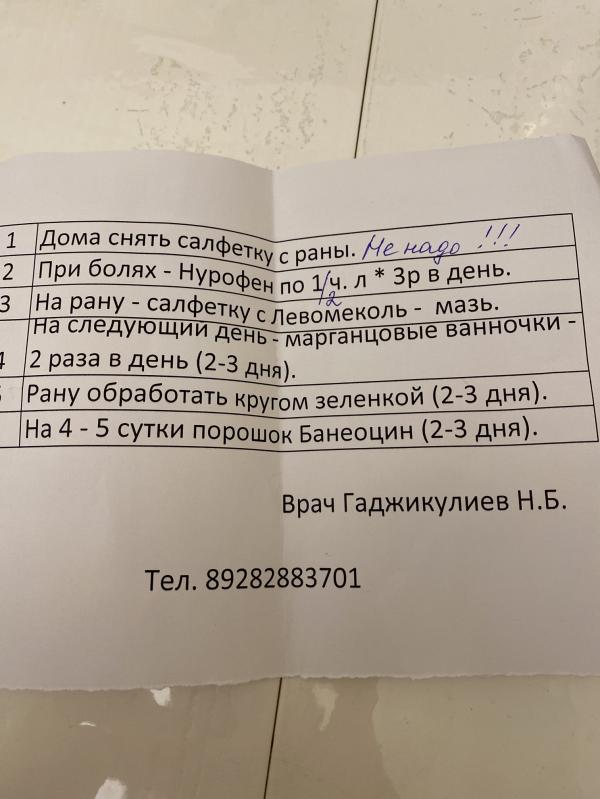 1 Дома снять салфетку с раны. Не надо !!!
2 При болях - Нурофен по 1/2 ч. л * 3р в день.
3 На рану - салфетку с Левомеколь - мазь.
На следующий день - марганцовые ванночки -
4 2 раза в день (2-3 дня).
Рану обработать кругом зеленкой (2-3 дня).
На 4 - 5 сутки порошок Банеоцин (2-3 дня).
Врач Гаджикулиев Н.Б.
Тел. 89282883701